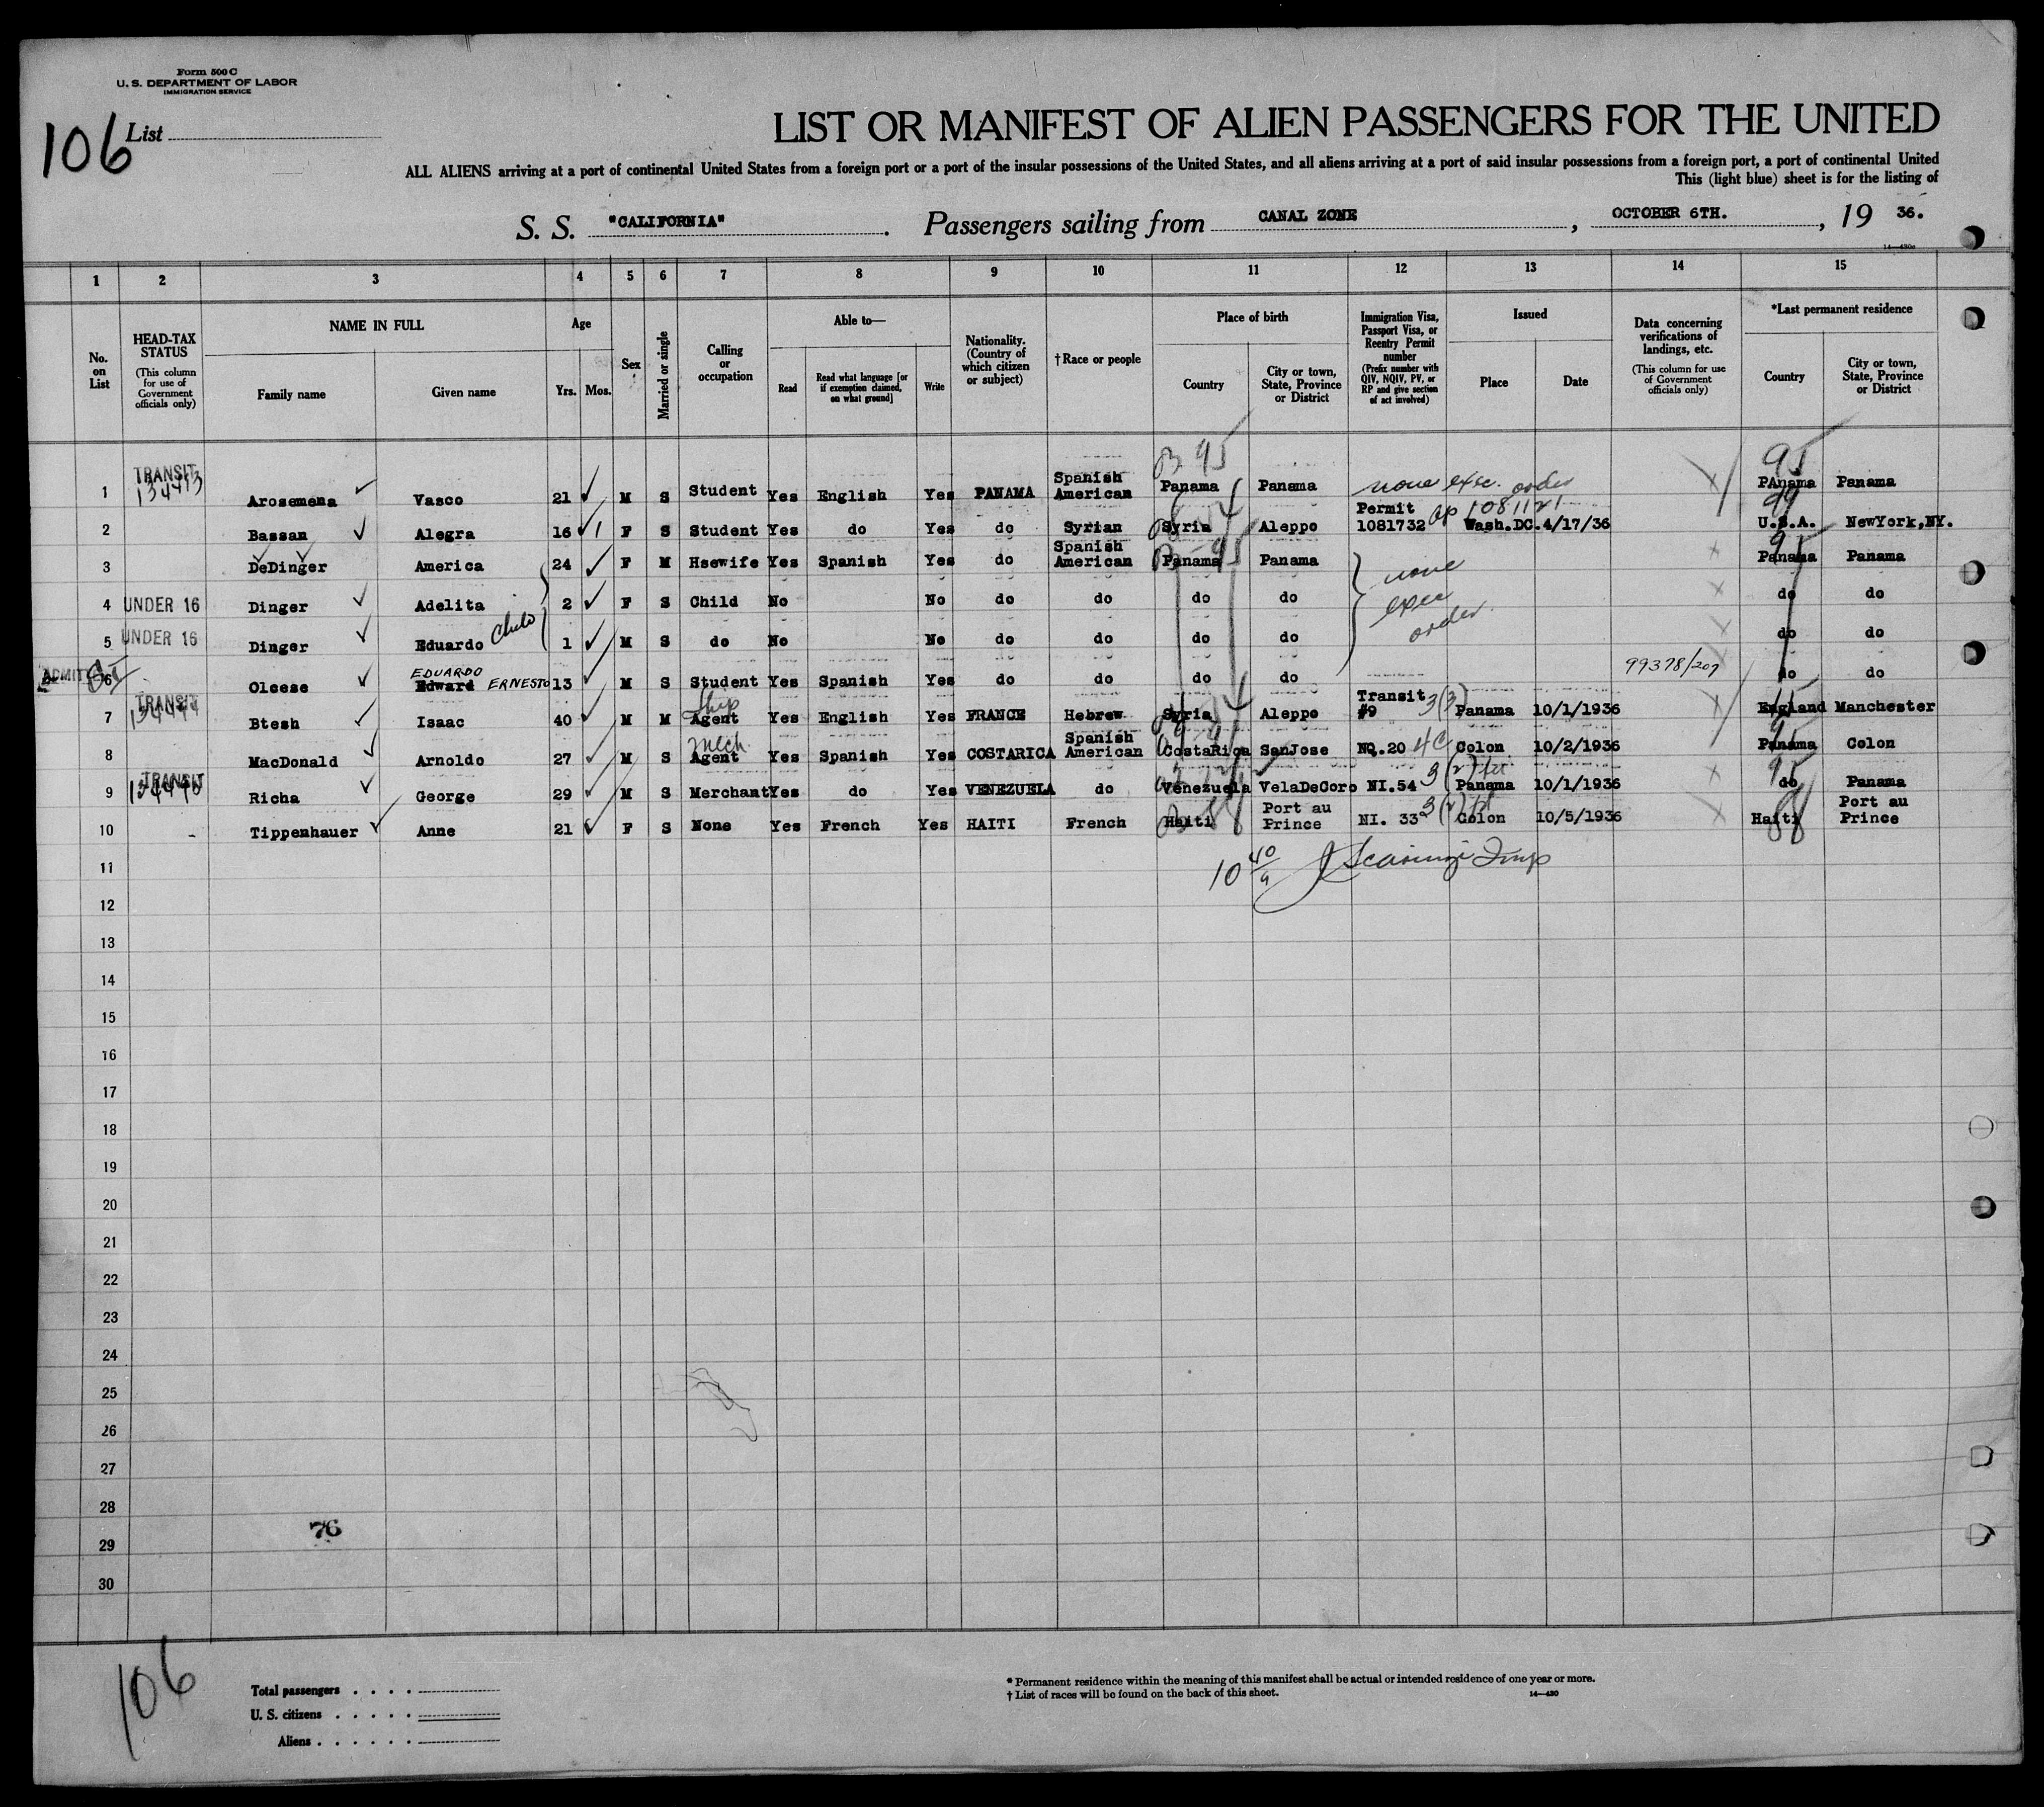 Form 500 C
U. S. DEPARTMENT OF LABOR
IMMIGRATION SERVICE
106 List
LIST OR MANIFEST OF ALIEN PASSENGERS FOR THE UNITED
ALL ALIENS arriving at a port of continental United States from a foreign port or a port of the insular possessions of the United States, and all aliens arriving at a port of said insular possessions from a foreign port, a port of continental United
This (light blue) sheet is for the listing of
S. S. "CALIFORNIA". Passengers sailing from CANAL ZONE, OCTOBER 6TH., 19 36.
14—430a
1 2 3 4 5 6 7 8 9 10 11 12 13 14 15
No. on List
HEAD-TAX STATUS
(This column for use of Government officials only)
NAME IN FULL
Family name Given name
Age
Yrs. Mos.
Sex
Married or single
Calling or occupation
Able to—
Read
Read what language [or if exemption claimed, on what ground]
Write
Nationality. (Country of which citizen or subject)
†Race or people
Place of birth
Country
City or town, State, Province or District
Immigration Visa, Passport Visa, or Reentry Permit number
(Prefix number with QIV, NQIV, PV, or RP and give section of act involved)
Issued
Place Date
Data concerning verifications of landings, etc.
(This column for use of Government officials only)
*Last permanent residence
Country
City or town, State, Province or District
B 95 95
1 TRANSIT 134473 Arosemena Vasco 21 M S Student Yes English Yes PANAMA Spanish American Panama Panama none exec. order PAnama Panama
2 Bassan Alegra 16 1 F S Student Yes do Yes do Syrian Syria Aleppo Permit 1081732 1081121 Wash.DC.4/17/36 99 U.S.A. NewYork,NY.
3 DeDinger America 24 F M Hsewife Yes Spanish Yes do Spanish American Panama B 95 Panama none exec order 95 Panama Panama
4 UNDER 16 Dinger Adelita 2 F S Child No No do do do do do do
5 UNDER 16 Dinger Eduardo 1 M S do No No do do do do do do
6 ADMITTED Olcese Edward EDUARDO ERNESTO 13 M S Student Yes Spanish Yes do do do do 99378/207 do do
7 TRANSIT 134474 Btesh Isaac 40 M M Ship Agent Yes English Yes FRANCE Hebrew Syria Aleppo Transit #9 3(3) Panama 10/1/1936 England Manchester
8 MacDonald Arnoldo 27 M S Mech. Agent Yes Spanish Yes COSTARICA Spanish American CostaRica SanJose NQ.20 4C Colon 10/2/1936 95 Panama Colon
9 TRANSIT 134475 Richa George 29 M S Merchant Yes do Yes VENEZUELA do Venezuela VelaDeCoro NI.54 3(2) Panama 10/1/1936 95 do Panama
10 Tippenhauer Anne 21 F S None Yes French Yes HAITI French Haiti 88 Port au Prince NI. 33 3(2) Colon 10/5/1936 Haiti 88 Port au Prince
11
12
13
14
15
16
17
18
19
20
21
22
23
24
25
26
27
28
29
30
76
106
Total passengers
U. S. citizens
Aliens
* Permanent residence within the meaning of this manifest shall be actual or intended residence of one year or more.
† List of races will be found on the back of this sheet.
14—430